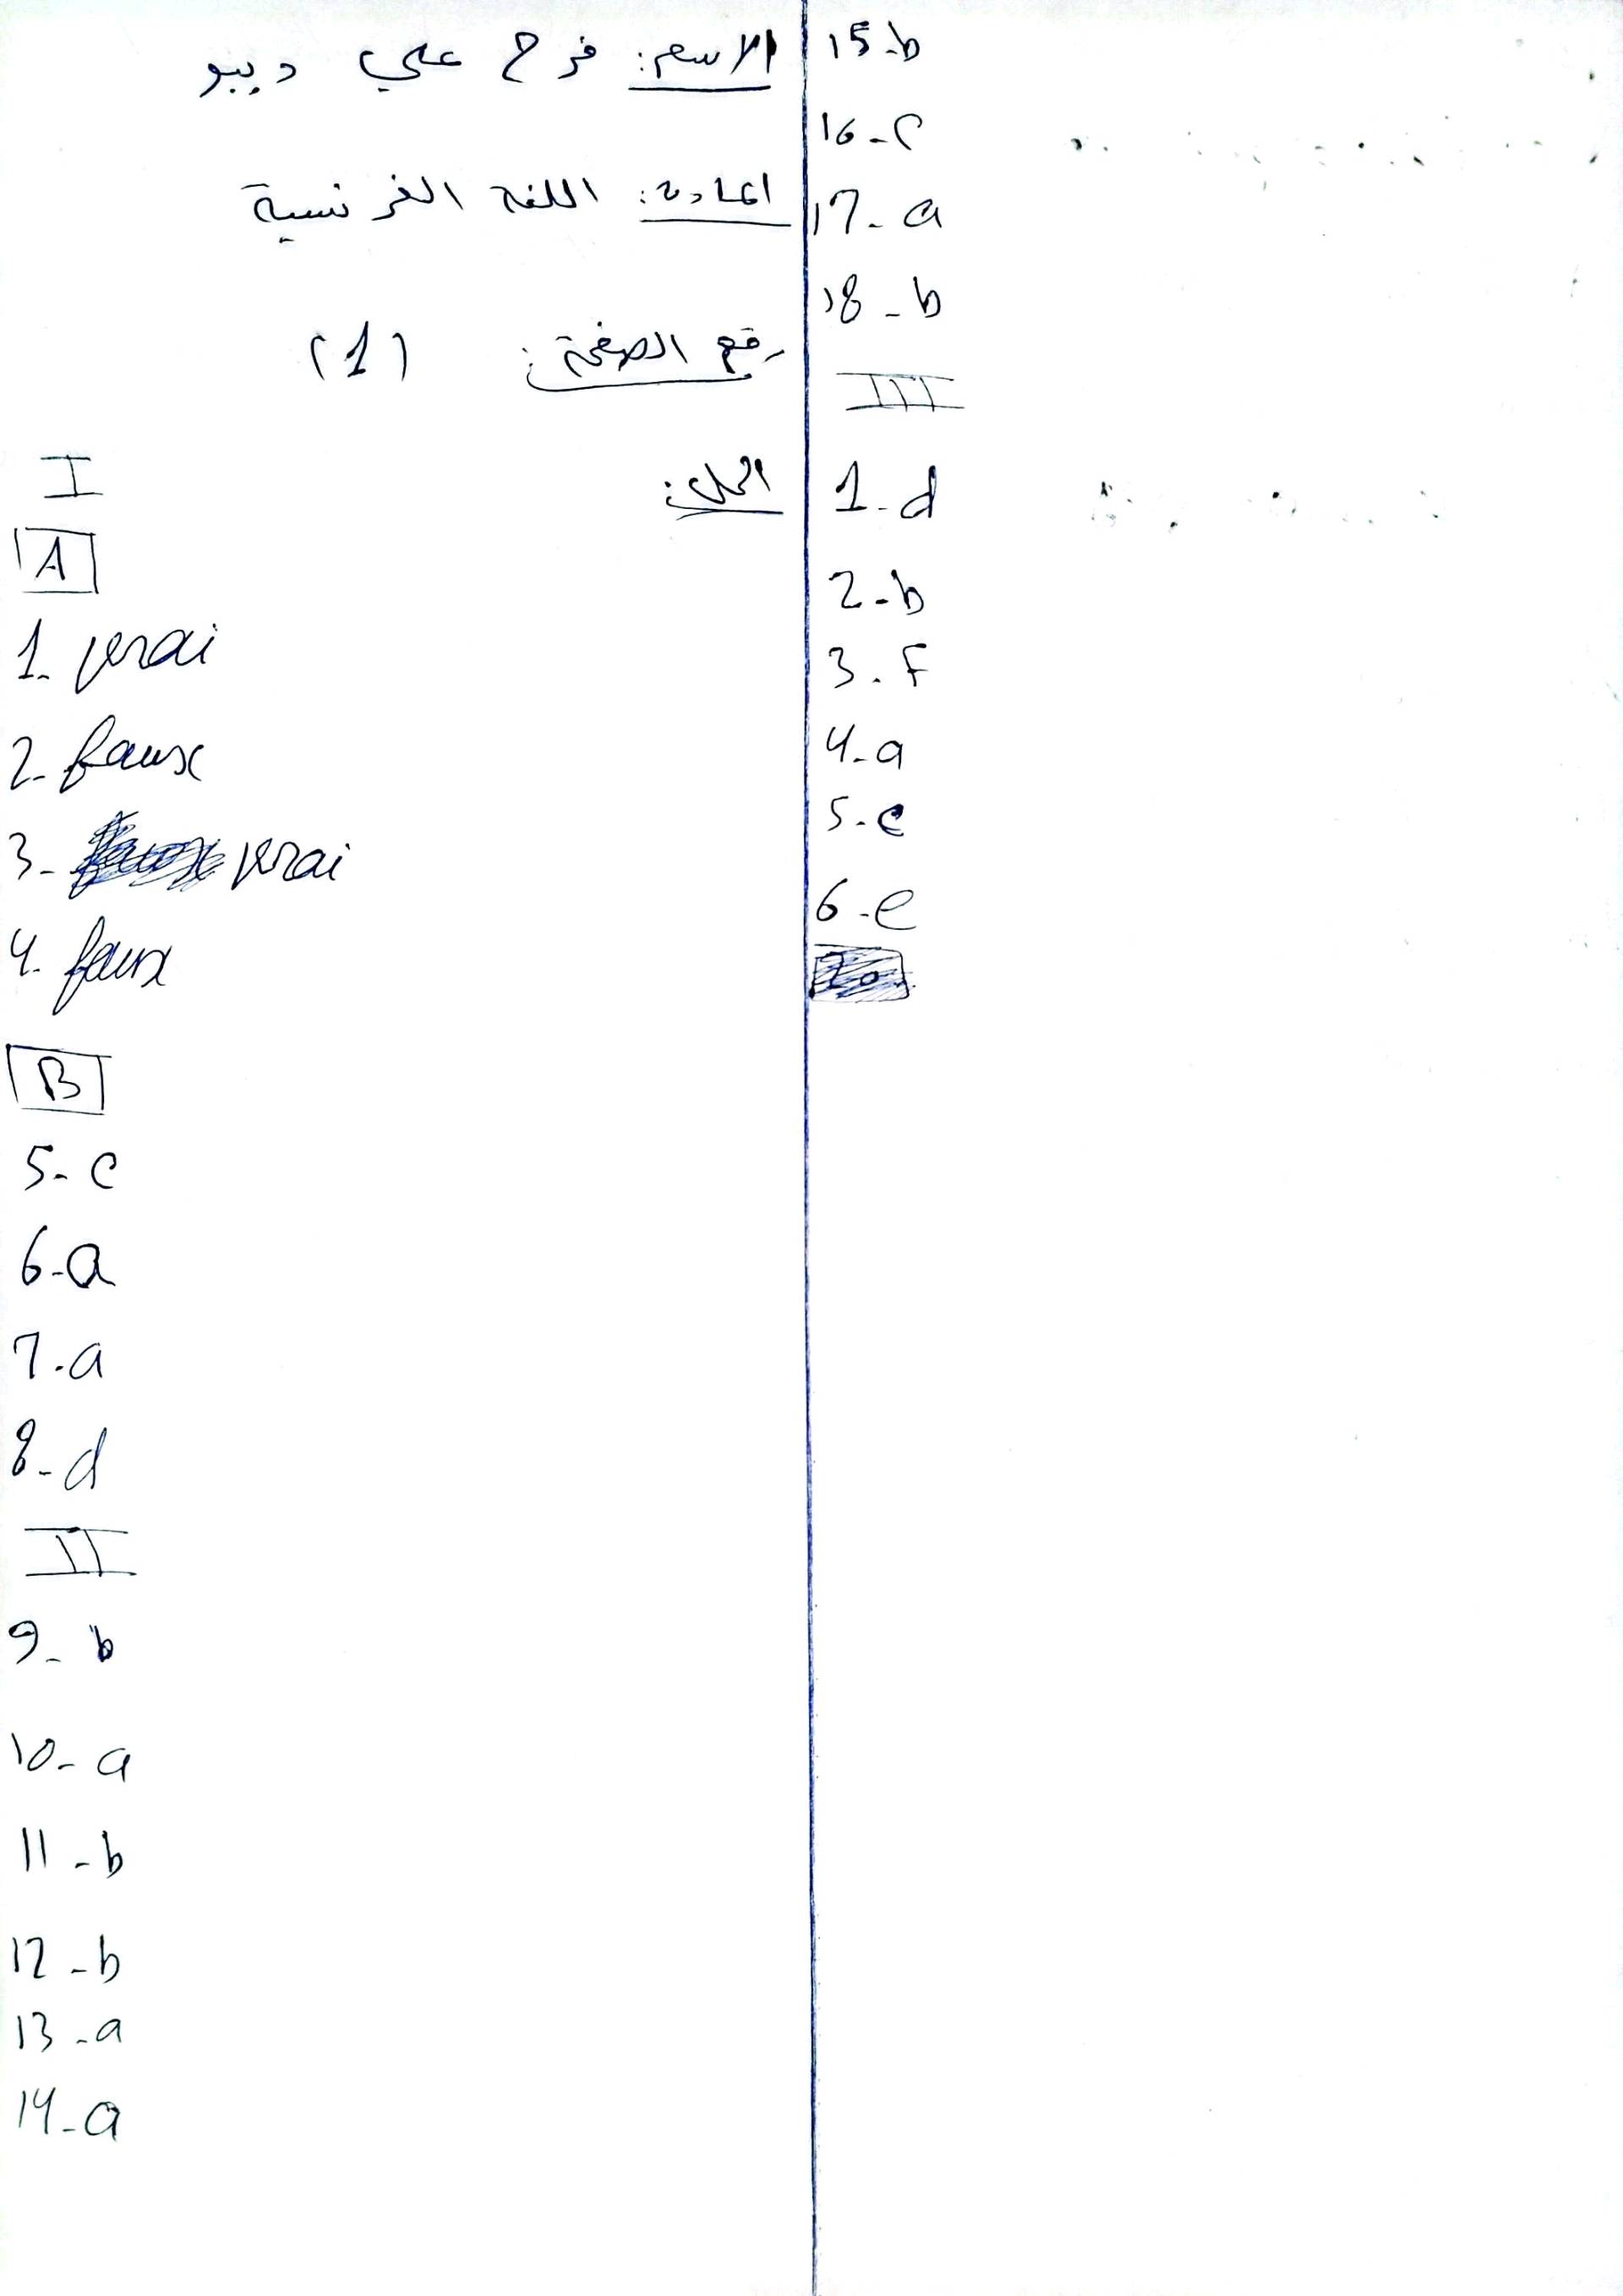 الاسم: فرح علي ديبو
المادة: اللغة الفرنسية
رقم الصفحة: (1)
الحل:
I
A
1. vrai
2- faux
3- vrai
4. faux
B
5- c
6-a
7.a
8-d
II
9- b
10- a
11-b
12-b
13-a
14-a
15-b
16-c
17-a
18-b
III
1-d
2-b
3.F
4-a
5-c
6-e